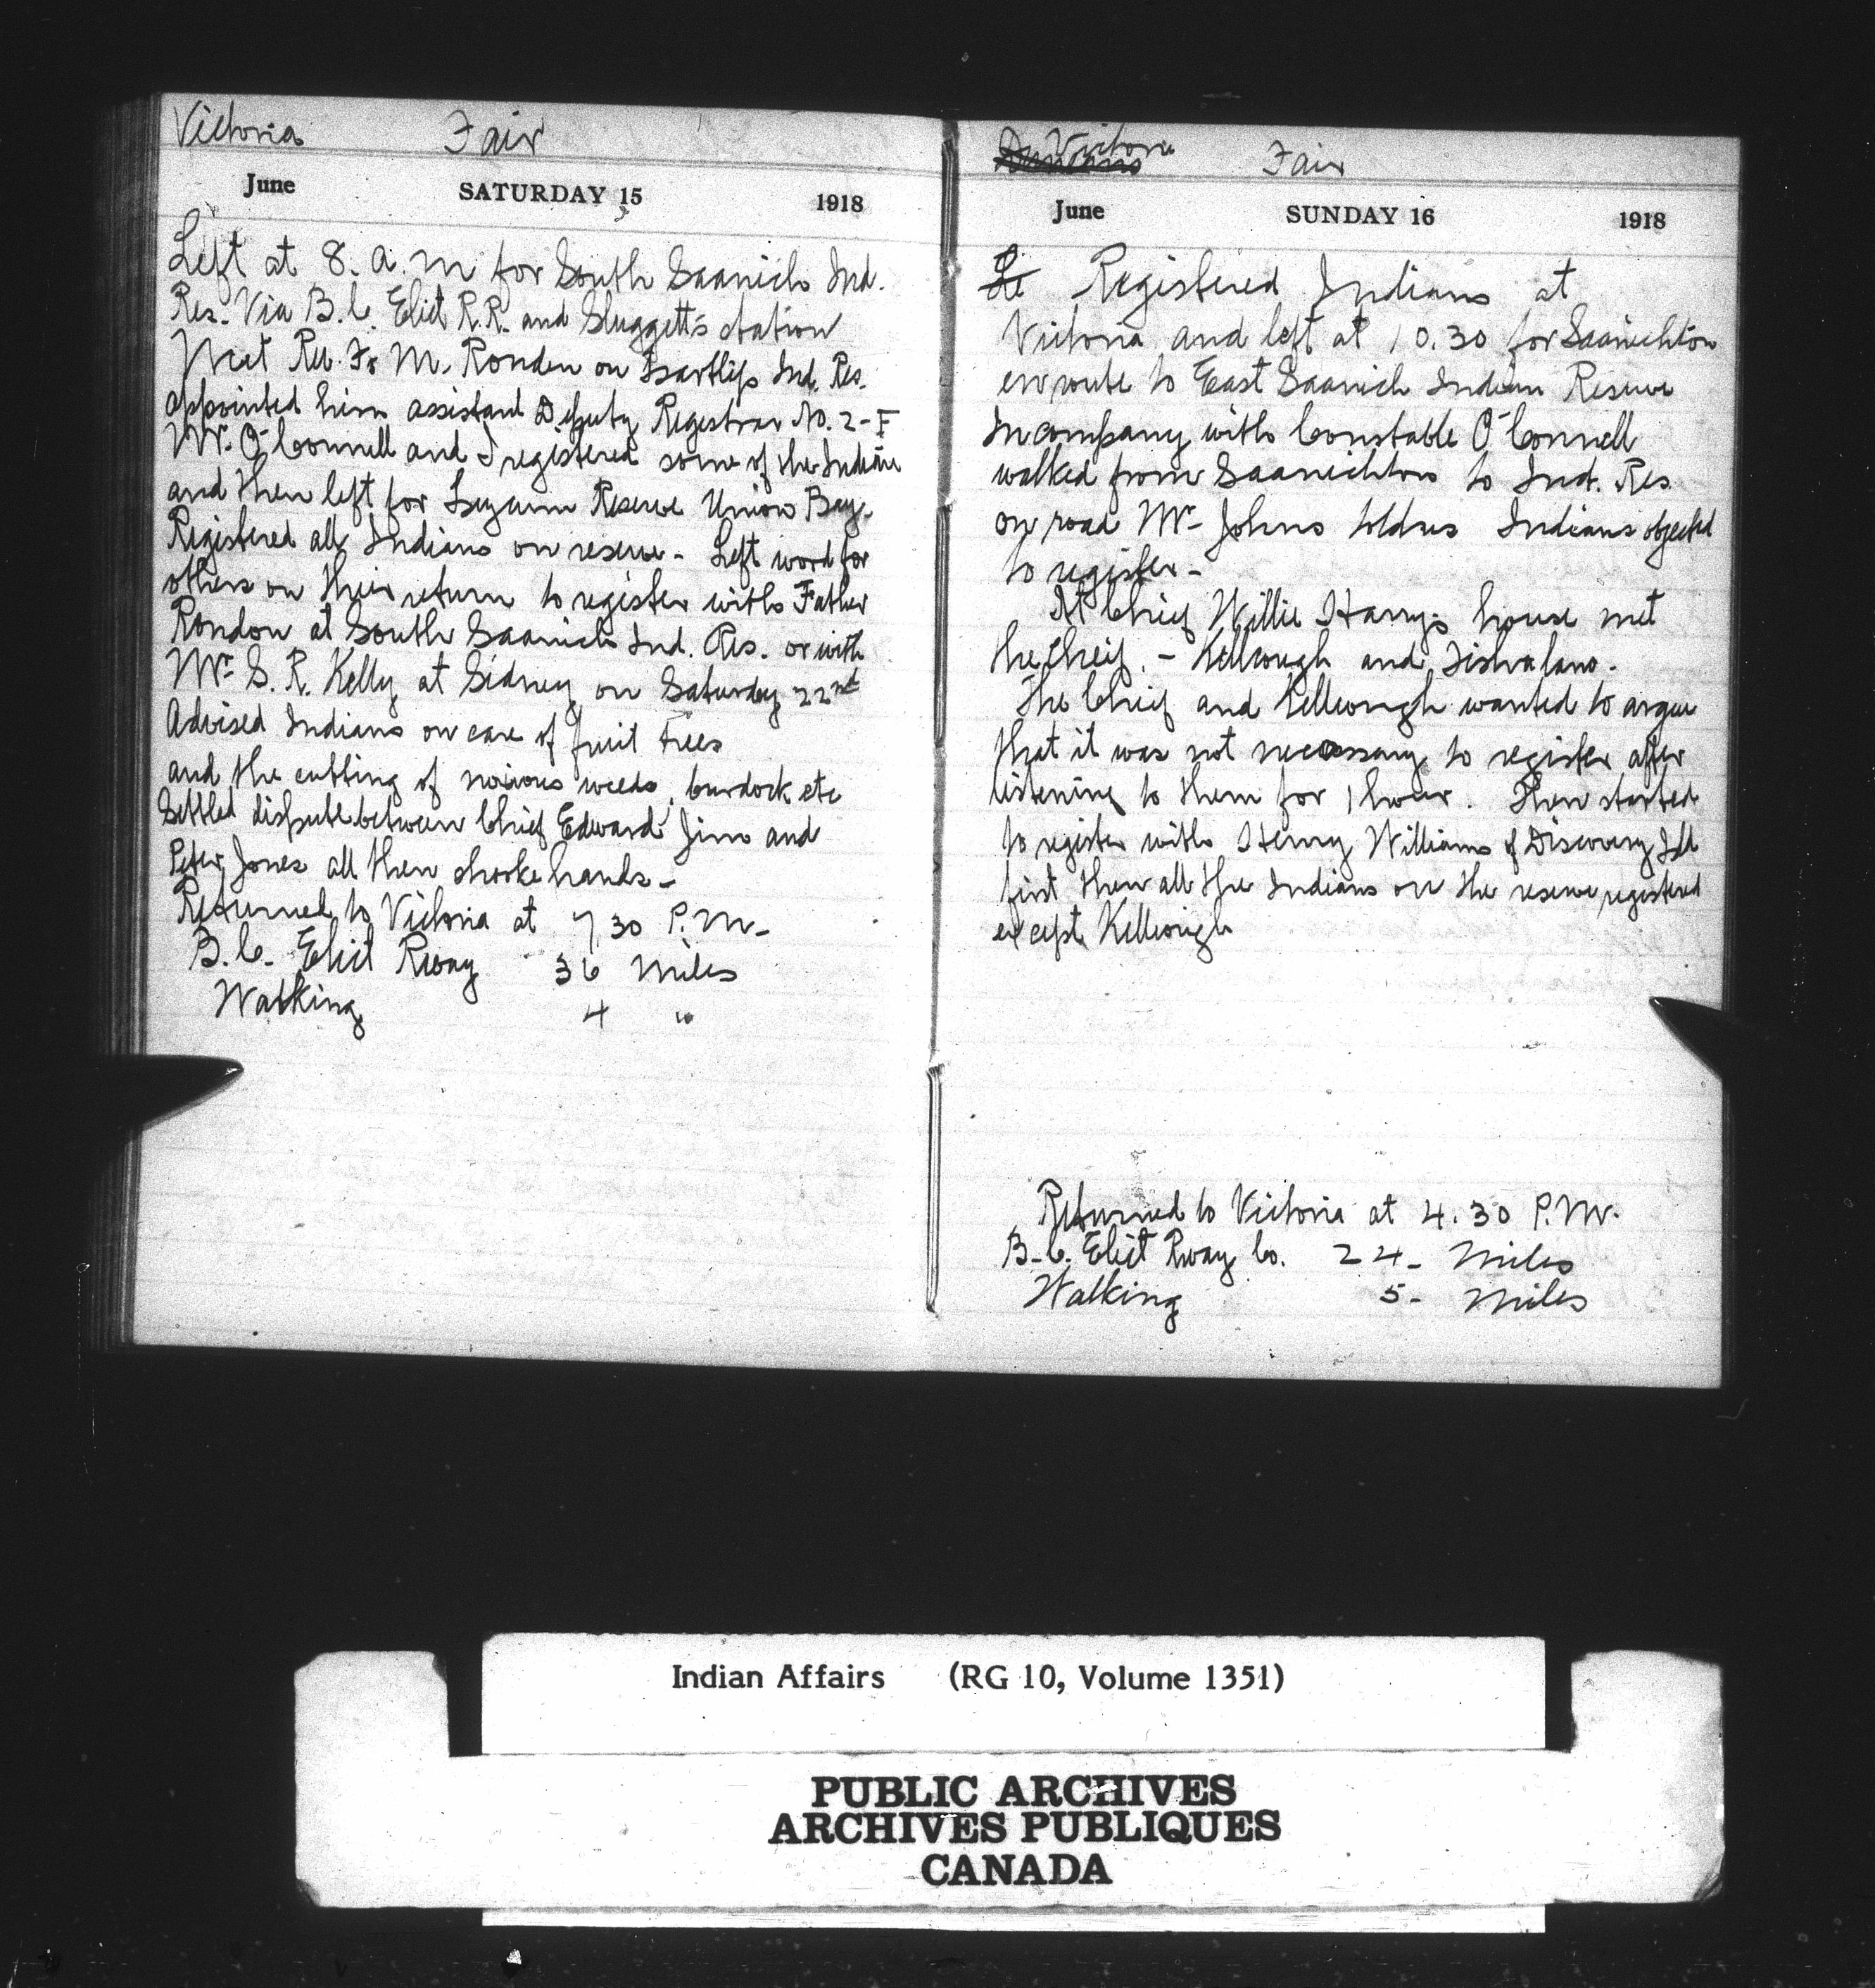 Victoria Fair
June SATURDAY 15 1918
Left at 8. a.m for South Saanich Ind.
Res. Via B.C. Elict R.R. and Sluggett's station
Met Rev. Fr M. Ronden on Tsartlip Ind. Res.
appointed him assistant Deputy Registrar No. 2-F
Mr. O'Connell and I registered some of the Indians
and then left for Reserve Union Bay.
Registered all Indians on reserve - Left word for
others on their return to register with Father
Rondon at South Saanich Ind. Res. or with
Mr. S. R. Kelly at Sidney on Saturday 22nd
Advised Indians on care of fruit trees
and the cutting of noxious weeds, burdock etc
Settled dispute between Chief Edward Jim and
Peter Jones all then shooke hands -
Returned to Victoria at 7 30 P.M -
B.C. Elict Rway 36 Miles
Walking 4 "
Victoria Fair
June SUNDAY 16 1918
Le Registered Indians at
Victoria and left at 10.30 for Saanichton
enroute to East Saanich Indian Reserve
In company with Constable O'Connell
walked from Saanichton to Ind. Res.
on road Mr. Johns told us Indians objected
to register -
At Chief Willie Harry's house met
the Cheif. - Kellwough and
The Chief and Kellwough wanted to argue
that it was not necessary to register after
listening to them for 1 hour. Then started
to register with Henry Williams of Discovery Isld
first then all the Indians on the reserve registered
except Kellwough
Returned to Victoria at 4.30 P.M.
B.C. Elict Rway Co. 24 - Miles
Walking 5 - Miles
Indian Affairs (RG 10, Volume 1351)
PUBLIC ARCHIVES
ARCHIVES PUBLIQUES
CANADA